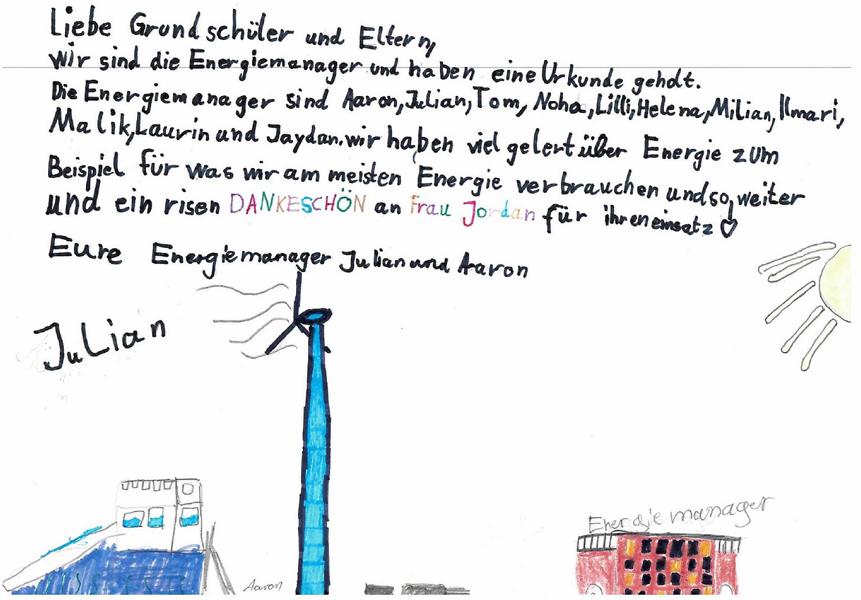 Liebe Grundschüler und Eltern,
wir sind die Energiemanager und haben eine Urkunde geholt.
Die Energiemanager sind Aaron, Julian, Tom, Noha, Lilli, Helena, Milian, Ilmari,
Malik, Laurin und Jaydan. wir haben viel gelert über Energie zum
Beispiel für was wir am meisten Energie verbrauchen und so weiter
und ein risen DANKESCHÖN an Frau Jordan für ihren einsatz ♡
Eure Energiemanager Julian und Aaron
Julian
Energiemanager
Aaron